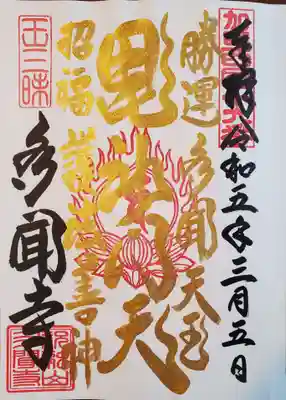 奉拝 令和五年三月五日
勝運 多聞天王
毘沙門天
招福 護法善神
多聞寺
王三昧